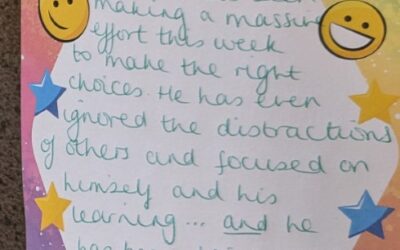 making a massive
effort this week
to make the right
choices. He has even
ignored the distractions
of others and focused on
himself and his
learning... and he
has